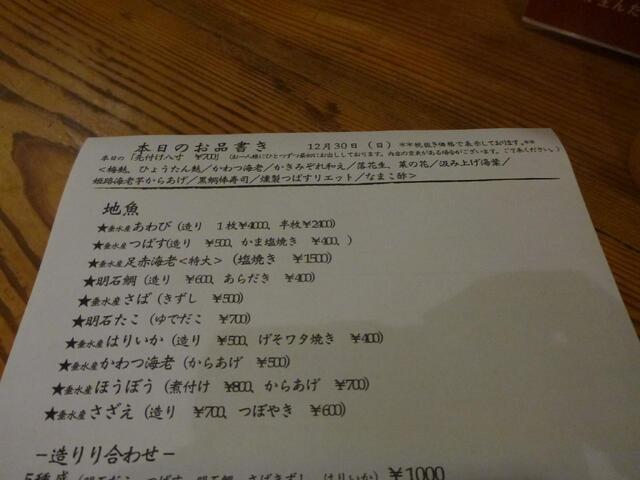 本日のお品書き 12月30日(日) **税抜き価格で表示しております。**
本日の「先付け八寸 ¥700」(お一人様にひとつずつ最初にお出ししております。内容の変更がある場合がございます。ご了承ください)
<梅麩、ひょうたん麩/かわつ海老/かきみぞれ和え/落花生、菜の花/汲み上げ湯葉/
姫路海老芋からあげ/黒鯛棒寿司/燻製つばすリエット/なまこ酢>
地魚
★垂水産あわび(造り 1枚¥4000、半枚¥2400)
★垂水産つばす(造り ¥500、かま塩焼き ¥400、)
★垂水産足赤海老<特大>(塩焼き ¥1500)
★明石鯛(造り ¥600、あらだき ¥400)
★垂水産さば(きずし ¥500)
★明石たこ(ゆでだこ ¥700)
★垂水産はりいか(造り ¥500、げそワタ焼き ¥400)
★垂水産かわつ海老(からあげ ¥500)
★垂水産ほうぼう(煮付け ¥800、からあげ ¥700)
★垂水産さざえ(造り ¥700、つぼやき ¥600)
-造りり合わせ-
5種盛(明石だこ、つばす、明石鯛、さばきずし、はりいか) ¥1000